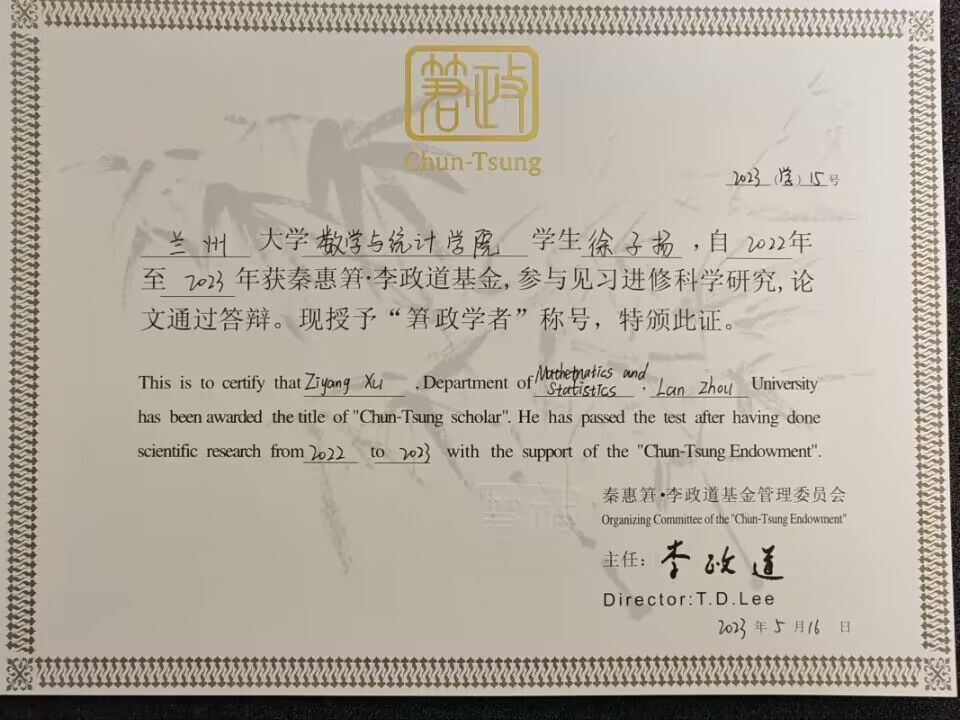 䇹政
Chun-Tsung
2023(学)15号
兰州大学数学与统计学院学生徐子扬,自2022年
至2023年获秦惠䇹·李政道基金,参与见习进修科学研究,论
文通过答辩。现授予“䇹政学者”称号,特颁此证。
This is to certify that Ziyang Xu, Department of Mathetnatics and Statistics, Lan Zhou University
has been awarded the title of "Chun-Tsung scholar". He has passed the test after having done
scientific research from 2022 to 2023 with the support of the "Chun-Tsung Endowment".
秦惠䇹·李政道基金管理委员会
Organizing Committee of the "Chun-Tsung Endowment"
主任:李政道
Director:T.D.Lee
2023年5月16日